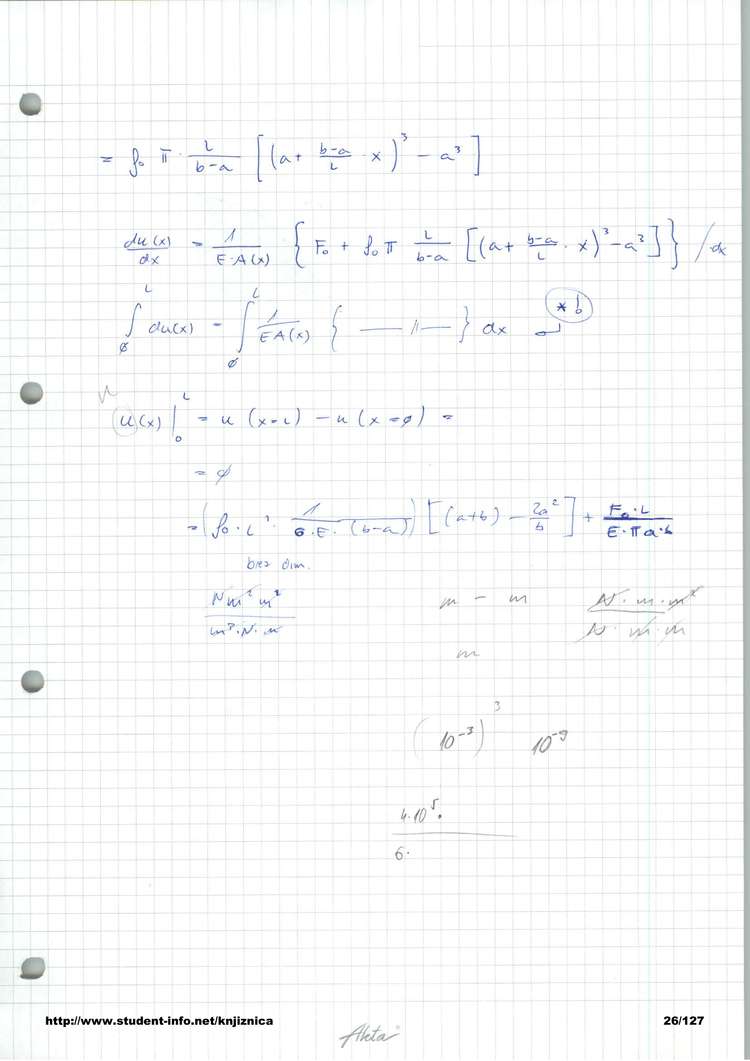 = f₀ π · L/(b-a) [(a + (b-a)/L · x)³ - a³]
du(x)/dx = 1/(E·A(x)) { F₀ + f₀ π L/(b-a) [(a + (b-a)/L · x)³ - a³] } / dx
∫₀ᴸ du(x) = ∫₀ᴸ 1/(EA(x)) { —— 〃 —— } dx *!
u(x)|₀ᴸ = u (x=L) - u (x=∅) =
= ∅
= (f₀ · L² · 1/(6·E·(b-a))) [(a+b) - 2a²/b] + F₀·L/(E·π a·b)
brez dim.
N m² m²/(m³·N·m) m - m N·m·m²/(N·m·m)
m
(10⁻³)³ 10⁻⁹
4·10⁵·
6·
http://www.student-info.net/knjiznica 26/127
Ahta